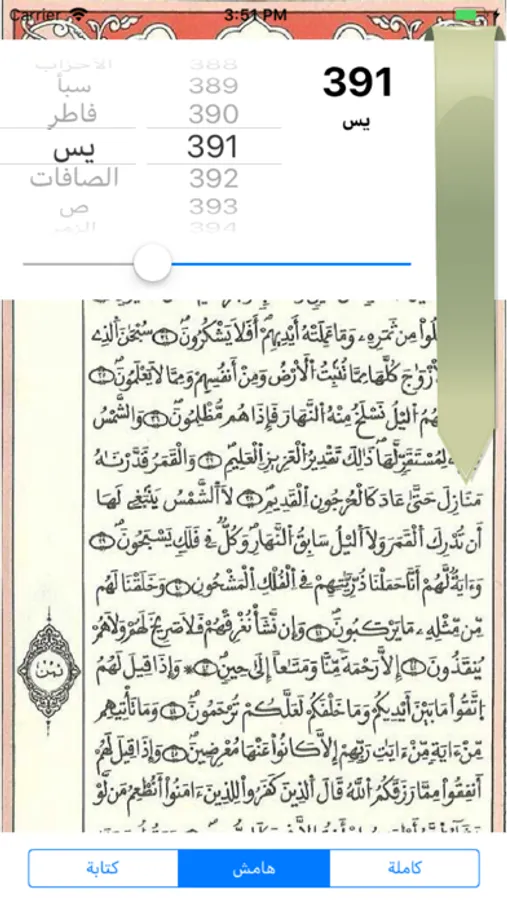 Carrier 3:51 PM
الأحزاب 388
سبأ 389
فاطر 390
يس 391
الصافات 392
ص 393
الزمر 394
391
يس
لُواْ مِن ثَمَرِهِۦ وَمَا عَمِلَتْهُ أَيْدِيهِمْ أَفَلَا يَشْكُرُونَ سُبْحَٰنَ ٱلذِے
لَازْوَٰجَ كُلَّهَا مِمَّا تُنۢبِتُ اُلَارْضُ وَمِنْ أَنفُسِهِمْ وَمِمَّا لَا يَعْلَمُونَ
لَهُمُ اُليْلُ نَسْلَخُ مِنْهُ اُلنَّهَارَ فَإِذَا هُم مُّظْلِمُونَ وَالشَّمْسُ
لِمُسْتَقَرّٖ لَّهَا ذَٰلِكَ تَقْدِيرُ اُلْعَزِيزِ اِلْعَلِيمِ وَالْقَمَرُ قَدَّرْنَٰهُ
مَنَازِلَ حَتَّىٰ عَادَ كَالْعُرْجُونِ اِلْقَدِيمِ لَا اَلشَّمْسُ يَنۢبَغِے لَهَا
أَن تُدْرِكَ اَلْقَمَرَ وَلَا اَليْلُ سَابِقُ اُلنَّهَارِ وَكُلّٞ فِے فَلَكٖ يَسْبَحُونَ
وَءَايَةٞ لَّهُمُ أَنَّا حَمَلْنَا ذُرِّيَّٰتِهِمْ فِے اِلْفُلْكِ اِلْمَشْحُونِ وَخَلَقْنَا لَهُم
مِّن مِّثْلِهِۦ مَا يَرْكَبُونَ وَإِن نَّشَأْ نُغْرِقْهُمْ فَلَا صَرِيخَ لَهُمْ وَلَا هُمْ
يُنقَذُونَ إِلَّا رَحْمَةٗ مِّنَّا وَمَتَٰعاً اِلَىٰ حِينٖ وَإِذَا قِيلَ لَهُمُ
اُتَّقُواْ مَا بَيْنَ أَيْدِيكُمْ وَمَا خَلْفَكُمْ لَعَلَّكُمْ تُرْحَمُونَ وَمَا تَأْتِيهِم
مِّنَ اٰيَةٖ مِّنَ اٰيَٰتِ رَبِّهِمُ إِلَّا كَانُواْ عَنْهَا مُعْرِضِينَ وَإِذَا قِيلَ لَهُمُ
أَنفِقُواْ مِمَّا رَزَقَكُمُ اُللَّهُ قَالَ اَلذِينَ كَفَرُواْ لِلذِينَ ءَامَنُواْ أَنُطْعِمُ مَن لَّوْ
ثمن
كتابة هامش كاملة